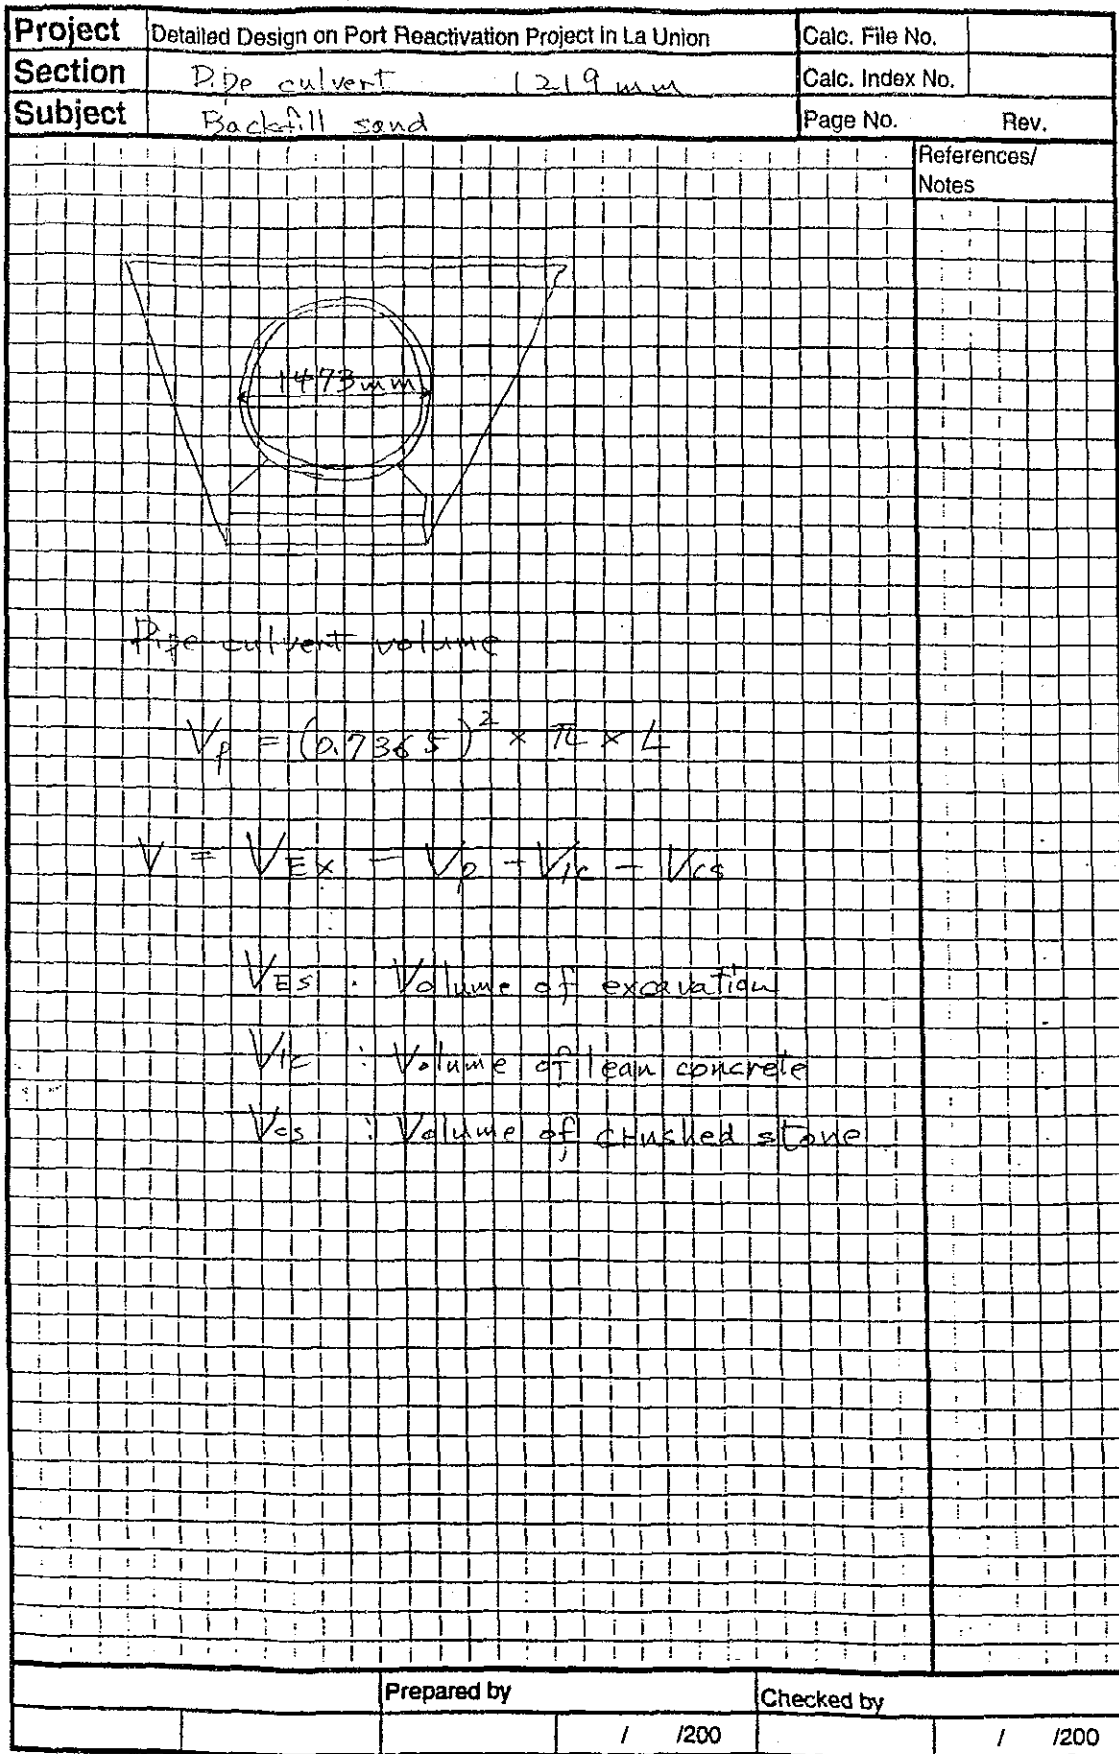 Project Detailed Design on Port Reactivation Project in La Union Calc. File No.
Section Pipe culvert 1219 mm Calc. Index No.
Subject Backfill sand Page No. Rev.
References/
Notes
1473 mm
Pipe culvert volume
Vp = (0.7365)² × π × L
V = VEX - Vp - Vlc - Vcs
VES : Volume of excavation
Vlc : Volume of lean concrete
Vcs : Volume of crushed stone
Prepared by Checked by
/ /200 / /200